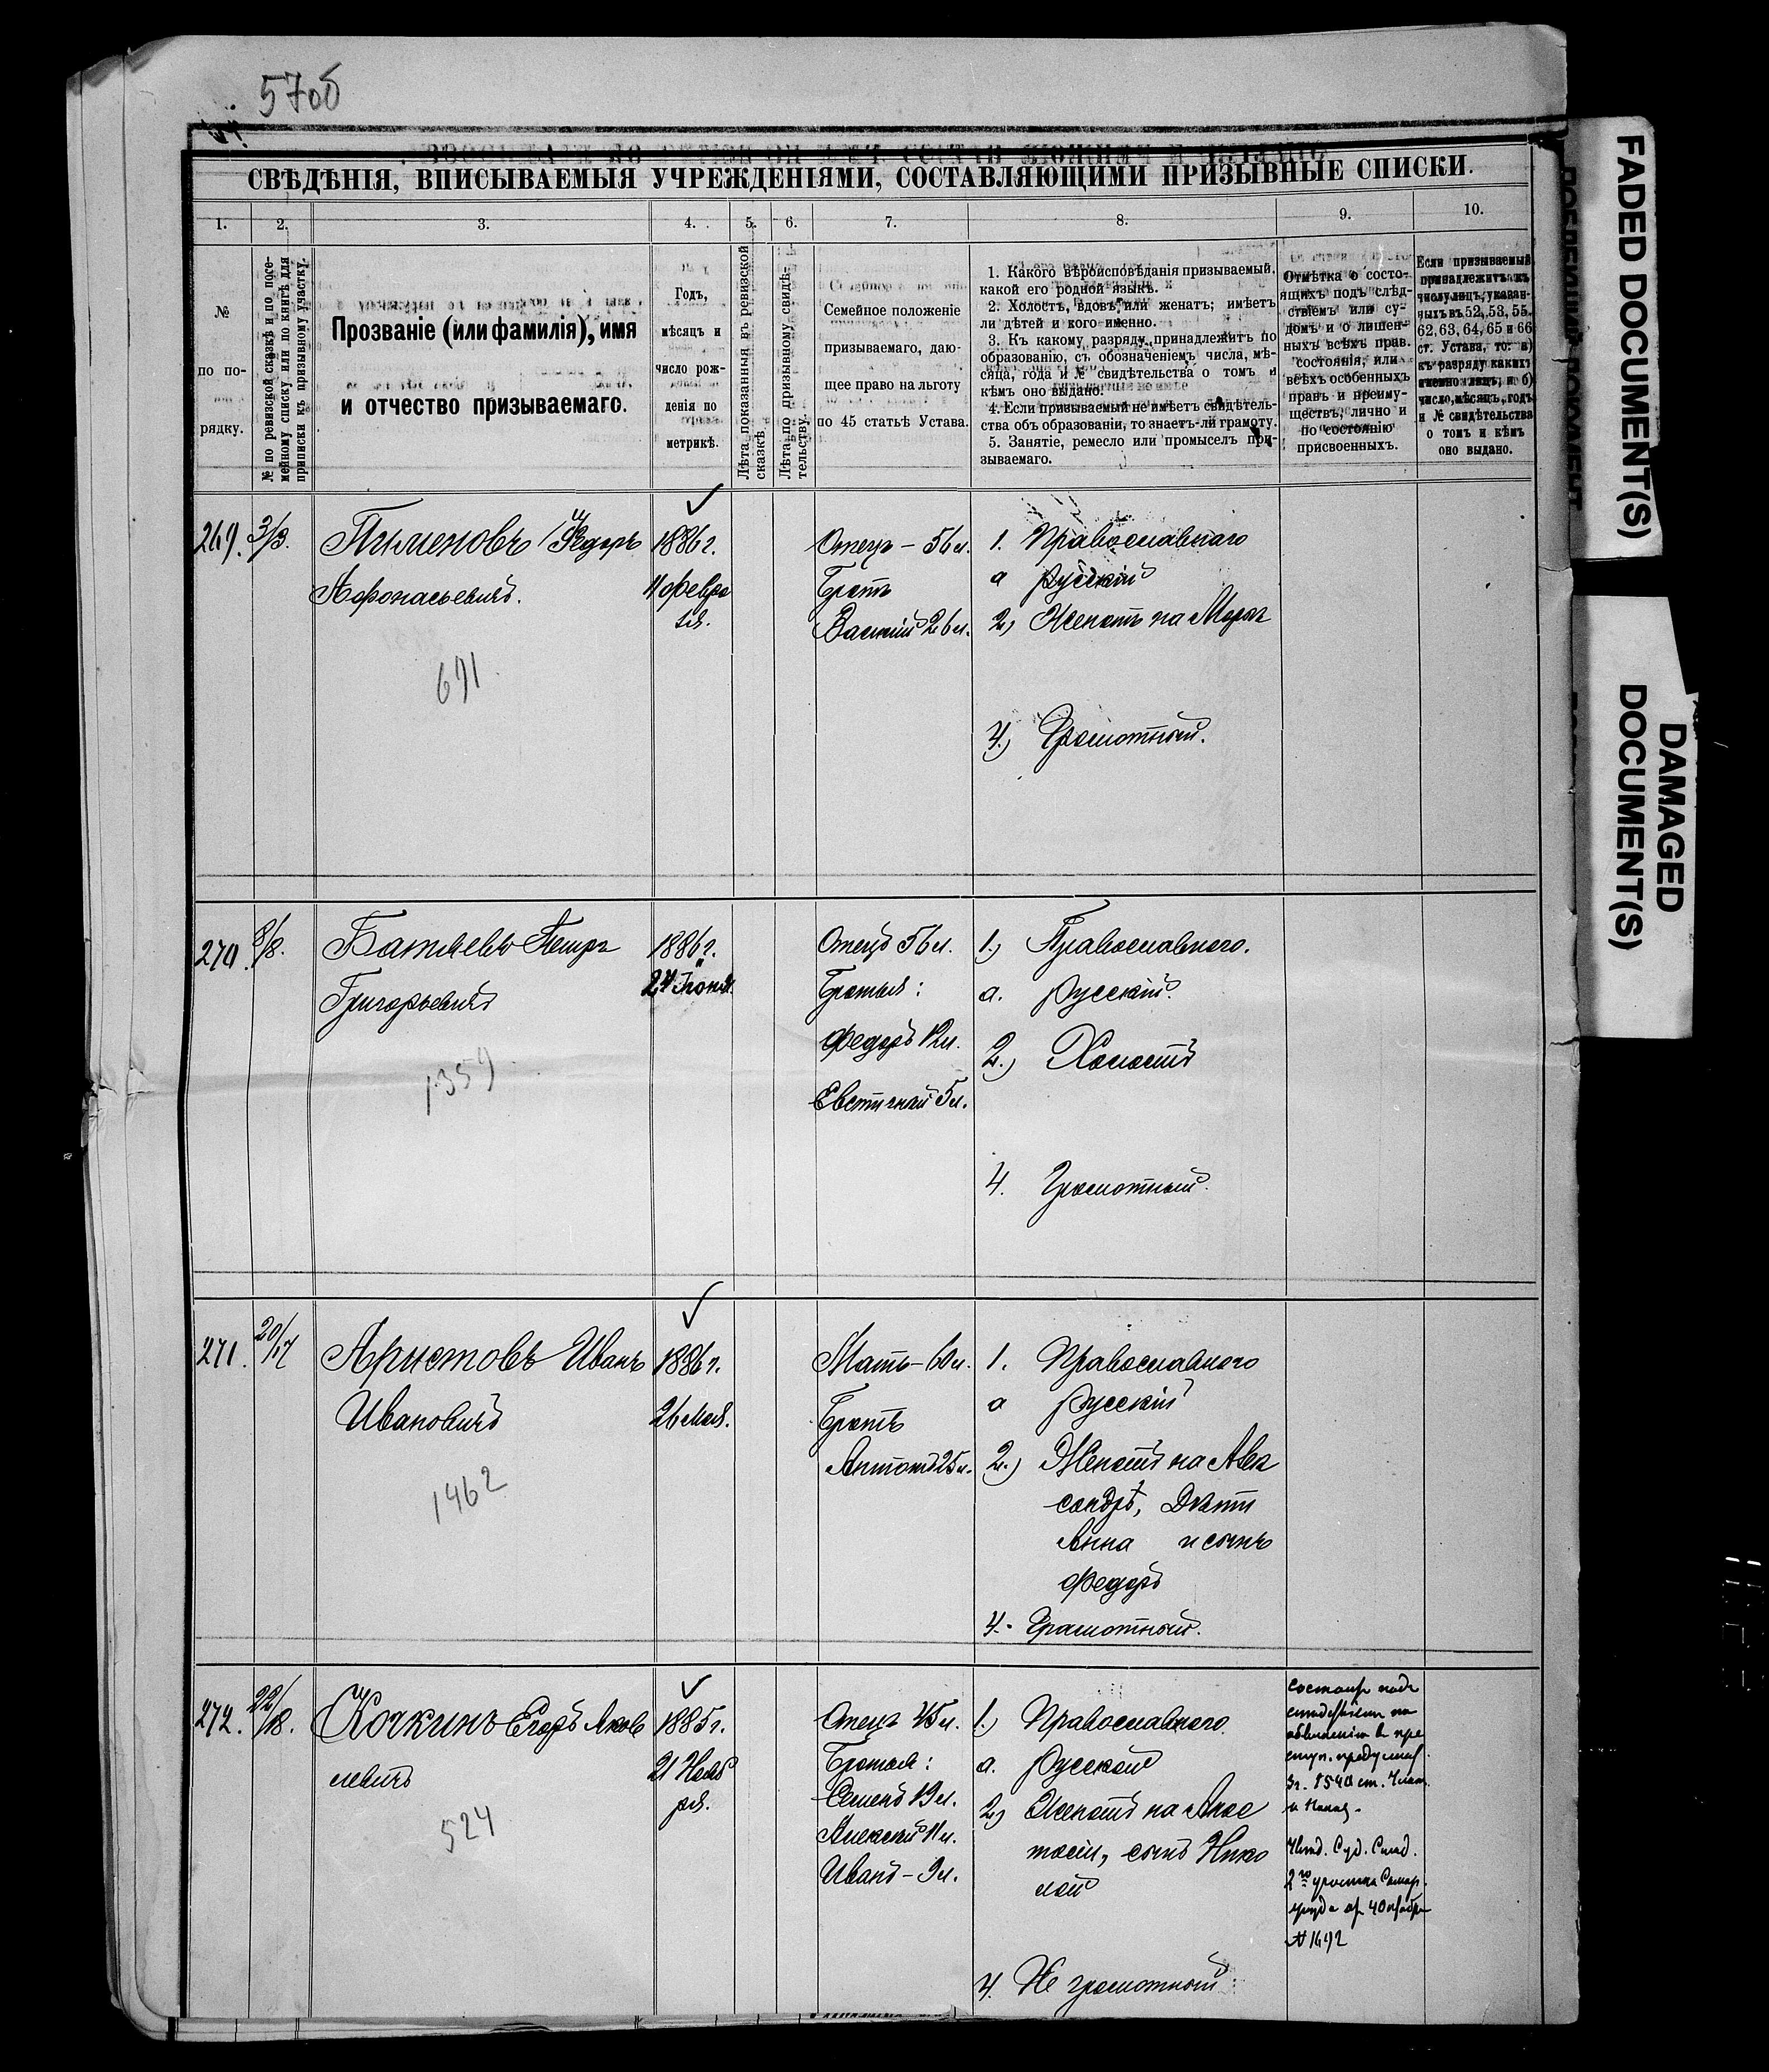 57об
СВѢДѢНІЯ, ВПИСЫВАЕМЫЯ УЧРЕЖДЕНІЯМИ, СОСТАВЛЯЮЩИМИ ПРИЗЫВНЫЕ СПИСКИ.
1. 2. 3. 4. 5. 6. 7. 8. 9. 10.
№
по по-
рядку.
№ по ревизской сказкѣ и по посе-
мейному списку или по книгѣ для
приписки къ призывному участку.
Прозваніе (или фамилія), имя
и отчество призываемаго.
Годъ,
мѣсяцъ и
число рож-
денія по
метрикѣ.
Лѣта, показанныя въ ревизской
сказкѣ.
Лѣта по призывному свидѣ-
тельству.
Семейное положеніе
призываемаго, даю-
щее право на льготу
по 45 статьѣ Устава.
1. Какого вѣроисповѣданія призываемый,
какой его родной языкъ.
2. Холостъ, вдовъ или женатъ; имѣетъ
ли дѣтей и кого именно.
3. Къ какому разряду принадлежитъ по
образованію, съ обозначеніемъ числа, мѣ-
сяца, года и № свидѣтельства о томъ и
кѣмъ оно выдано.
4. Если призываемый не имѣетъ свидѣтель-
ства объ образованіи, то знаетъ-ли грамоту.
5. Занятіе, ремесло или промыселъ при-
зываемаго.
Отмѣтка о состо-
ящихъ подъ слѣд-
ствіемъ или су-
домъ и о лишен-
ныхъ всѣхъ прав.
состоянія, или
всѣхъ особенныхъ
правъ и преиму-
ществъ, лично и
по состоянію
присвоенныхъ.
Если призываемый
принадлежитъ къ
числу лицъ, указан-
ныхъ въ 52, 53, 55.
62, 63, 64, 65 и 66
ст. Устава, то: а)
къ разряду какихъ
именно лицъ; и б)
число, мѣсяцъ, годъ
и № свидѣтельства
о томъ и кѣмъ
оно выдано.
269. 3/3.
Пименовъ Ѳедоръ
Афонасьевичъ.
691
1886 г.
11 Февра
ля.
Отецъ – 56 л.
Братъ
Василій 26 л.
1. Православнаго
а Русскій
2) Женатъ на
4) Грамотный.
270. 8/8.
Петръ
Григорьевичъ
1359
1886 г.
24 Іюня.
Отецъ 56 л.
Братья:
Федоръ 12 л.
5 л.
1.) Православнаго.
а. Русскій.
2.) Холостъ
4. Грамотный.
271. 20/17
Аристовъ Иванъ
Ивановичъ
1462
1886 г.
26 Мая.
Мать – 60 л.
Братъ
Антонъ 25 л.
1. Православнаго
а Русскій
2.) Женатъ на Алек
сандрѣ, Дѣти
Анна и сынъ
Федоръ
4. Грамотный.
272. 22/18.
Кочкинъ Егоръ Яков
левичъ
524
1885 г.
21 Нояб
ря.
Отецъ 45 л.
Братья:
Семенъ 19 л.
Алексѣй 11 л.
Иванъ – 9 л.
1.) Православнаго
а. Русскій
2) Женатъ на Анас
тасіи, сынъ Нико
лай
4. Не грамотный
Состоитъ подъ
слѣдствіем по
обвиненію в пре
ступ. предусмот.
1540 ст. Улож.
о Наказ.
Суд. Слѣд.
2го участка Самар.
уѣзда от 4 Октября
№ 1692
FADED DOCUMENT(S)
DAMAGED
DOCUMENT(S)